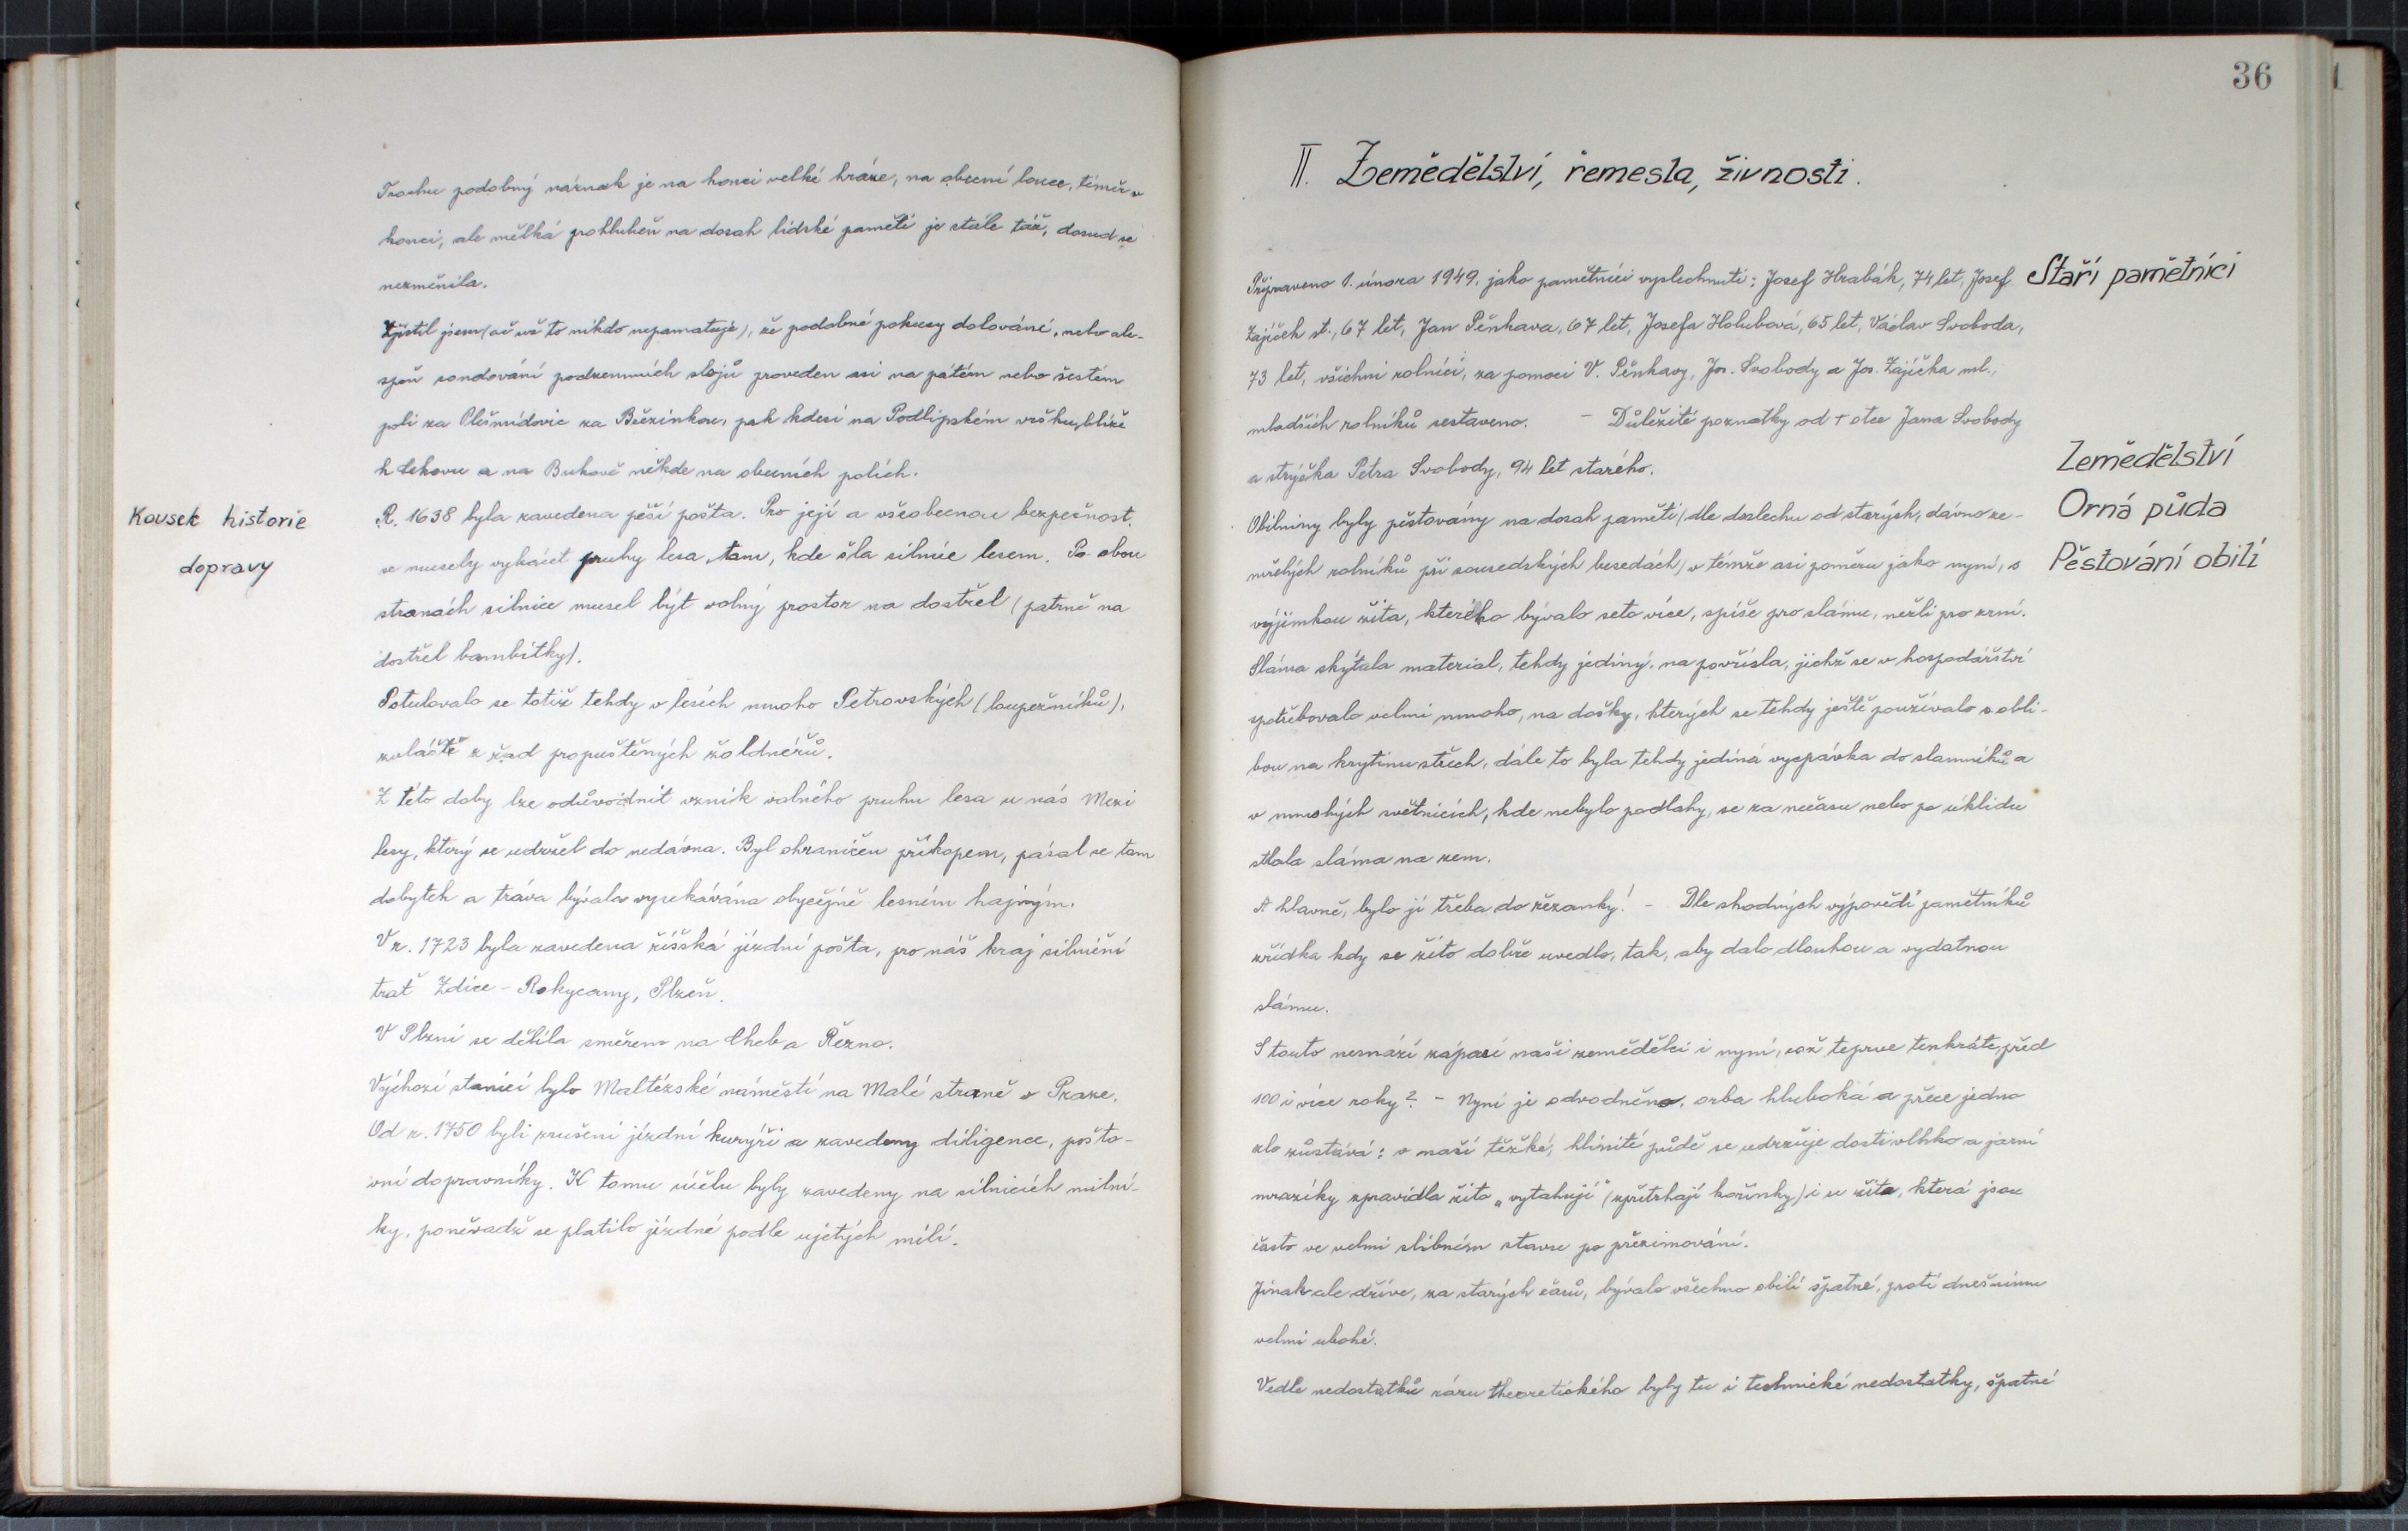 Trochu podobný náznak je na konci velké hráze, na obecní louce, téměř v
konci, ale mělká prohlubeň na dosah lidské paměti je stále táž, dosud se
nezměnila.
Zjistil jsem (ač už to nikdo nepamatuje), že podobné pokusy dolování, nebo ale-
spoň sondování podzemních slojů proveden asi na pátém nebo šestém
poli za Plešmídovic za Březinkou, pak kdesi na Podlipském vršku, blíže
k Lhkovu a na Bukově někde na obecních polích.
Kousek historie
dopravy
R. 1638 byla zavedena pěší pošta. Pro její a všeobecnou bezpečnost,
se musely vykácet pruhy lesa, tam, kde šla silnice lesem. Po obou
stranách silnice musel být volný prostor na dostřel (patrně na
dostřel bambitky).
Potulovalo se totiž tehdy v lesích mnoho Petrovských (loupežníků),
zvláště z řad propuštěných žoldnéřů.
Z této doby lze odůvodnit vznik volného pruhu lesa u nás Mezi
lesy, který se udržel do nedávna. Byl ohraničen příkopem, pásal se tam
dobytek a tráva bývala vysekávána obyčejně lesním hajným.
V r. 1723 byla zavedena říšská jízdní pošta, pro náš kraj silniční
trať Zdice - Rokycany, Plzeň.
V Plzni se dělila směrem na Cheb a Řezno.
Výchozí stanicí bylo Maltézské náměstí na Malé straně v Praze.
Od r. 1750 byli zrušeni jízdní kurýři a zavedeny diligence, pošto-
vní dopravníky. K tomu účelu byly zavedeny na silnicích milní-
ky, poněvadž se platilo jízdné podle ujetých mílí.
36
II. Zemědělství, řemesla, živnosti.
Staří pamětníci
Připraveno 1. února 1949, jako pamětníci vyslechnuti: Josef Hrabák, 74 let, Josef
Zajíček st., 67 let, Jan Pěnkava, 67 let, Josefa Holubová, 65 let, Václav Svoboda,
73 let, všichni rolníci, za pomoci V. Pěnkavy, Jos. Svobody a Jos. Zajíčka ml.,
mladších rolníků sestaveno. - Důležité poznatky od + otce Jana Svobody
a strýčka Petra Svobody, 94 let starého.
Zemědělství
Orná půda
Pěstování obilí
Obilniny byly pěstovány na dosah paměti (dle doslechu od starých, dávno ze-
mřelých rolníků při sousedských besedách) v témže asi poměru jako nyní, s
výjimkou žita, kterého bývalo seto více, spíše pro slámu, nežli pro zrní.
Sláma skýtala material, tehdy jediný, na povřísla, jichž se v hospodářství
spotřebovalo velmi mnoho, na došky, kterých se tehdy ještě používalo s obli-
bou na krytinu střech, dále to byla tehdy jediná vycpávka do slamníků a
v mnohých světnicích, kde nebylo podlahy, se za nečasu nebo po úklidu
stlala sláma na zem.
A hlavně, bylo jí třeba do řezanky! - Dle shodných výpovědí pamětníků
zřídka kdy se žito dobře uvedlo, tak, aby dalo dlouhou a vydatnou
slámu.
S touto nesnází zápasí naši zemědělci i nyní, což teprve tenkráte, před
100 i více roky? - Nyní je odvodněno, orba hluboká a přece jedno
zlo zůstává: v naší těžké, hlinité půdě se udržuje dosti vlhko a jarní
mrazíky zpravidla žito "vytahují" (zpřetrhají kořínky) i u žita, která jsou
často ve velmi slibném stavu po přezimování.
Jinak ale dříve, za starých časů, bývalo všechno obilí špatné, proti dnešnímu
velmi ubohé.
Vedle nedostatků rázu theoretického byly tu i technické nedostatky, špatné